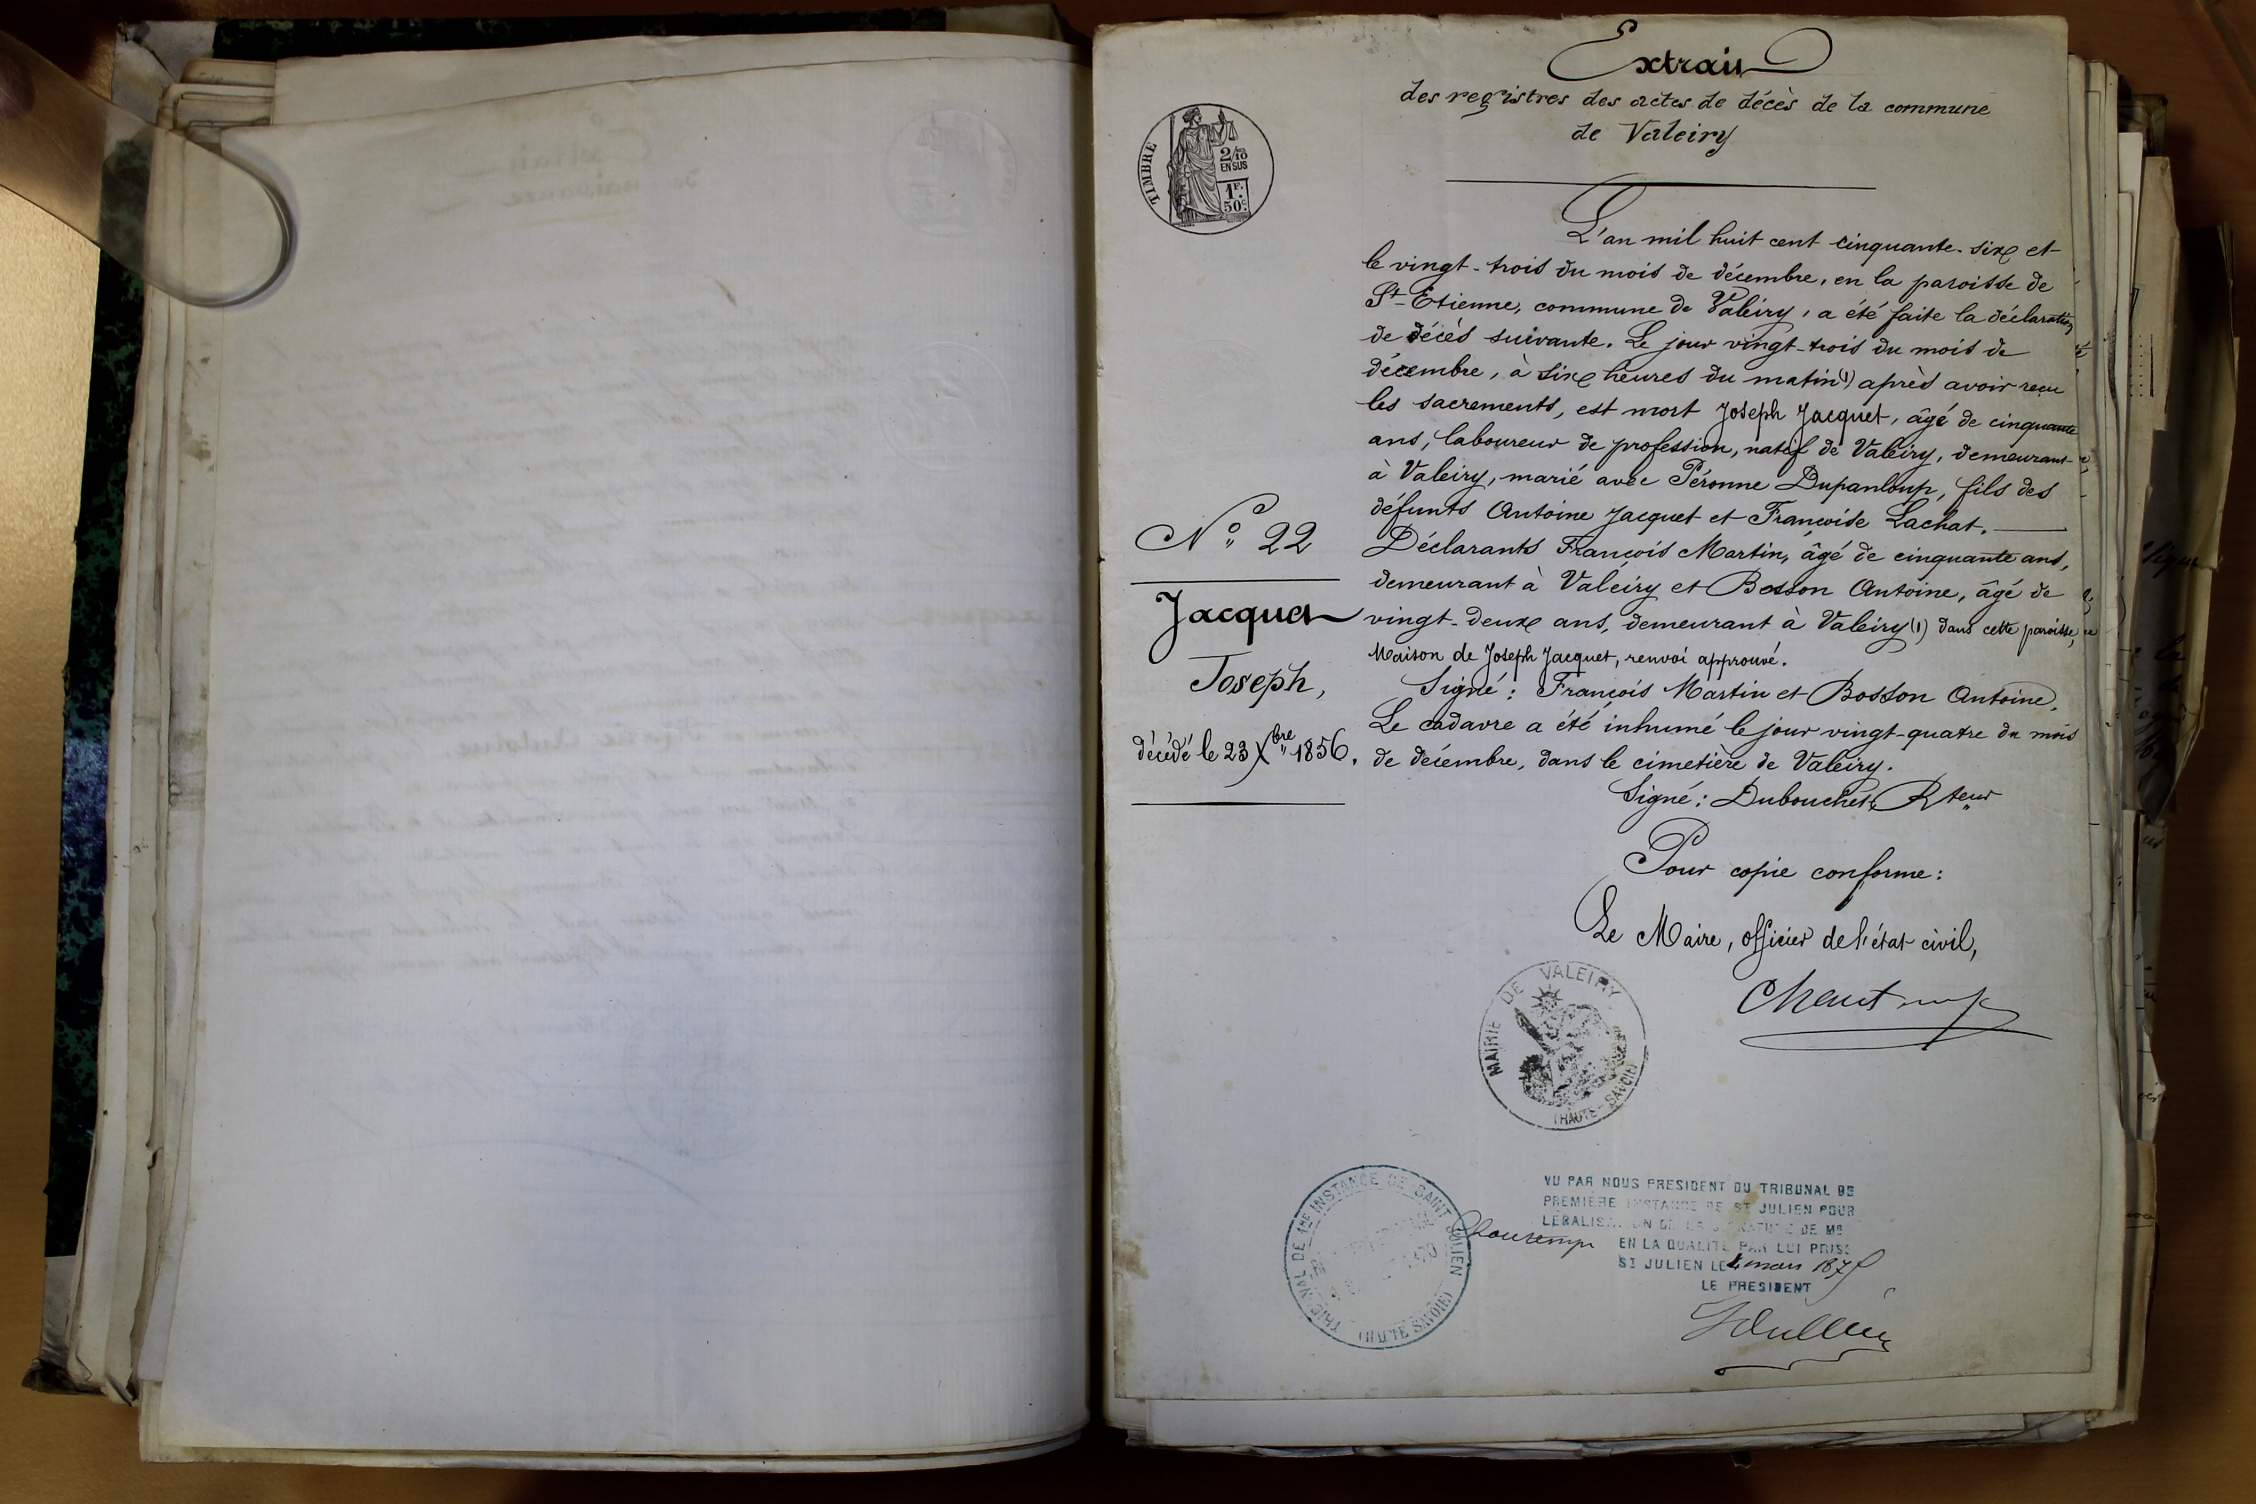 Extrait
des registres des actes de décès de la commune
de Valeiry
TIMBRE
2/10
EN SUS
1F.
50c.
L'an mil huit cent cinquante-six et
le vingt-trois du mois de décembre, en la paroisse de
St-Etienne, commune de Valeiry, a été faite la déclaration
de décès suivante. Le jour vingt-trois du mois de
décembre, à six heures du matin (1) après avoir reçu
les sacrements, est mort Joseph Jacquet, âgé de cinquante
ans, laboureur de profession, natif de Valeiry, demeurant
à Valeiry, marié avec Péronne Dupanloup, fils des
défunts Antoine Jacquet et Françoise Lachat.
Déclarants François Martin, âgé de cinquante ans,
demeurant à Valeiry et Bosson Antoine, âgé de
vingt-deux ans, demeurant à Valeiry (1) dans cette paroisse,
Maison de Joseph Jacquet, renvoi approuvé.
Signé : François Martin et Bosson Antoine.
Le cadavre a été inhumé le jour vingt-quatre du mois
de décembre, dans le cimetière de Valeiry.
Signé : Dubouchet, Rteur
N° 22
Jacquet
Joseph,
décédé le 23 Xbre 1856.
Pour copie conforme :
Le Maire, officier de l'état civil,
MAIRIE DE VALEIRY
(HAUTE-SAVOIE)
TRIBUNAL DE 1RE INSTANCE DE SAINT JULIEN
(HAUTE SAVOIE)
VU PAR NOUS PRESIDENT DU TRIBUNAL DE
PREMIÈRE INSTANCE DE ST JULIEN POUR
LEGALISATION DE LA SIGNATURE DE MR
EN LA QUALITÉ PAR LUI PRISE
ST JULIEN LE 4 mars 187
LE PRESIDENT